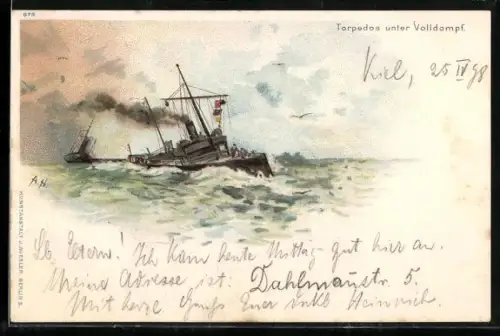 575
Torpedos unter Volldampf.
Kiel, 25 IV 98
A.H.
KUNSTANSTALT J. MIESLER, BERLIN S.
Lb. Eltern! Ich kam heute Mittag gut hier an.
Meine Adresse ist: Dahlmannstr. 5.
Mit herzl Gruß Euer Heinrich.